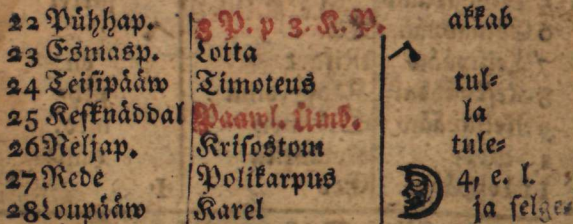 22 Pühhap. 3 P. p 3. K. P. akkab
23 Esmasp. Lotta
24 Teisipääw Timoteus tul-
25 Kesknäddal Paawl. Ümb. la
26 Neljap. Krisostom tule-
27 Rede Polikarpus 4, e. l.
28 Loupääw Karel ja selge-